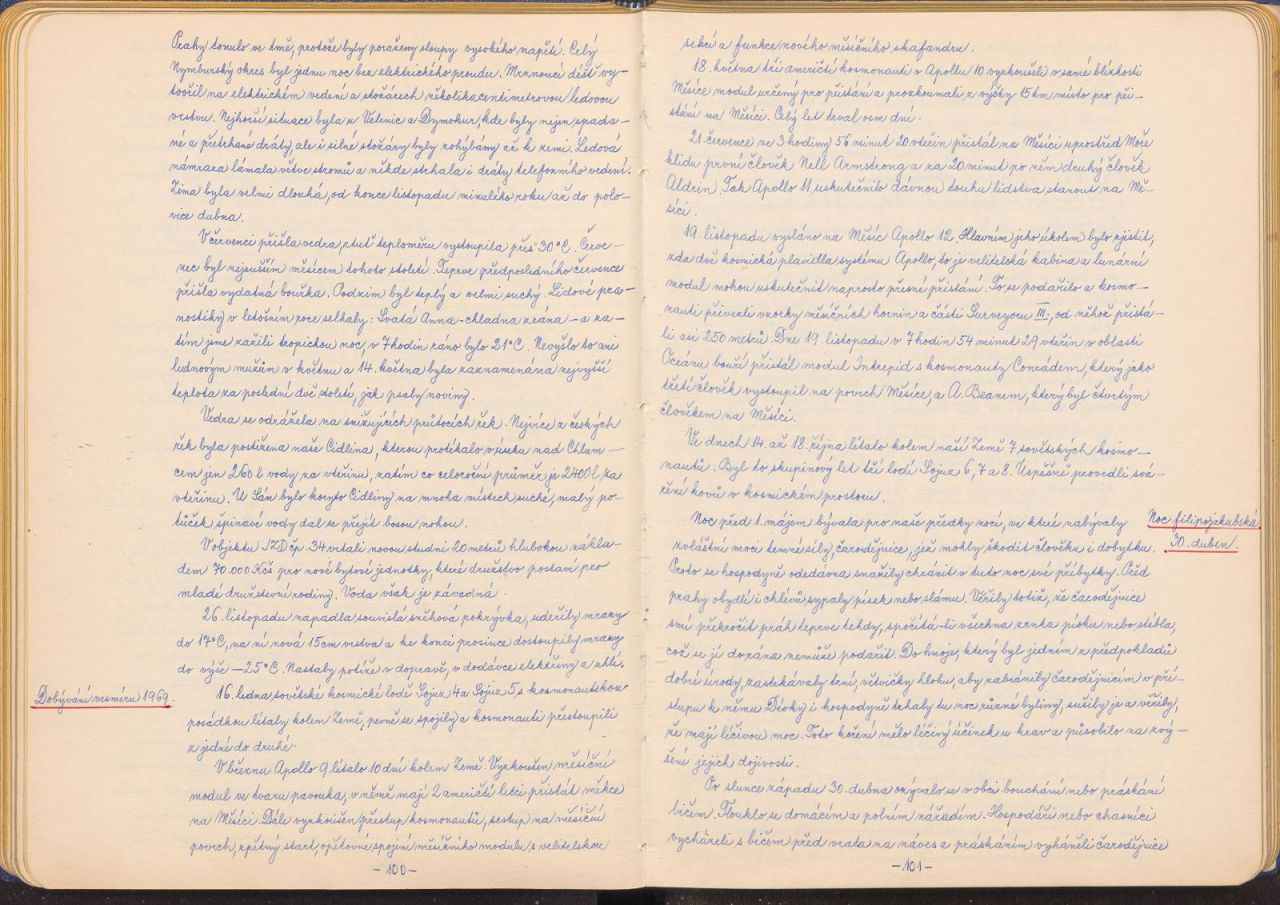 Prahy tonulo ve tmě, protože byly poraženy sloupy vysokého napětí. Celý
Nymburský okres byl jednu noc bez elektrického proudu. Mrznoucí déšť vy-
tvořil na elektrickém vedení a stožárech několikacentimetrovou ledovou
vrstvu. Nejhorší situace byla u Velenic a Dymokur, kde byly nejen spada-
né a přetrhané dráty, ale i silné stožáry byly zohýbány až k zemi. Ledová
námraza lámala větve stromů a někde strhala i dráty telefonního vedení.
Zima byla velmi dlouhá, od konce listopadu minulého roku až do polo-
vice dubna.
V červenci přišla vedra, rtuť teploměru vystoupila přes 30°C. Červe-
nec byl nejsušším měsícem tohoto století. Teprve předposledního července
přišla vydatná bouřka. Podzim byl teplý a velmi suchý. Lidové pra-
nostiky v letošním roce selhaly: Svatá Anna - chladna zrána - a za-
tím jsme zažili tropickou noc, v 7 hodin ráno bylo 21°C. Nevyšlo to ani
ledovým mužům v květnu a 14. května byla zaznamenána nejvyšší
teplota za poslední dvě století, jak psaly noviny.
Vedra se odrážela na snižujících průtocích řek. Nejvíce z českých
řek byla postižena naše Cidlina, kterou protékalo v úseku nad Chlum-
cem jen 260 l vody za vteřinu, zatím co celoroční průměr je 2400 l za
vteřinu. U Sán bylo koryto Cidliny na mnoha místech suché, malý po-
tůček špinavé vody dal se přejít bosou nohou.
V objektu JZD čp. 34 vrtali novou studni 20 metrů hlubokou nákla-
dem 70.000 Kčs pro nové bytové jednotky, které družstvo postaví pro
mladé družstevní rodiny. Voda však je závadná.
26. listopadu napadla souvislá sněhová pokrývka, udeřily mrazy
do 17°C, na ni nová 15 cm vrstva a ke konci prosince dostoupily mrazy
do výše -25°C. Nastaly potíže v dopravě, v dodávce elektřiny a uhlí.
Dobývání vesmíru 1969.
16. ledna sovětské kosmické lodě Sojuz 4 a Sojuz 5, s kosmonautskou
posádkou létaly kolem Země, pevně se spojily a kosmonauti přestoupili
z jedné do druhé.
V březnu Apollo 9 létalo 10 dní kolem Země. Vyzkoušen měsíční
modul ve tvaru pavouka, v němž mají 2 američtí letci přistát měkce
na Měsíci. Dále vyzkoušen přestup kosmonautů, sestup na měsíční
povrch, zpětný start, opětovné spojení měsíčního modulu s velitelskou
- 100 -
sekcí a funkce nového měsíčního skafandru.
18. května tři američtí kosmonauti v Apollu 10 vyzkoušeli v samé blízkosti
Měsíce modul určený pro přistání a prozkoumali z výšky 15 km místo pro při-
stání na Měsíci. Celý let trval osm dní.
21. července ve 3 hodiny 56 minut 20 vteřin přistál na Měsíci uprostřed Moře
klidu první člověk Nell Armstrong a za 20 minut po něm druhý člověk
Aldrin. Tak Apollo 11 uskutečnilo dávnou touhu lidstva stanout na Mě-
síci.
19. listopadu vysláno na Měsíc Apollo 12. Hlavním jeho úkolem bylo zjistit,
zda dvě kosmická plavidla systému Apollo, to je velitelská kabina a lunární
modul mohou uskutečnit naprosto přesné přistání. To se podařilo a kosmo-
nauti přivezli vzorky měsíčních hornin a části Surveyoru III., od něhož přistá-
li asi 250 metrů. Dne 19. listopadu v 7 hodin 54 minut 29 vteřin v oblasti
Oceánu bouří přistál modul Intrepid s kosmonauty Conrádem, který jako
třetí člověk vystoupil na povrch Měsíce, a A. Beanem, který byl čtvrtým
člověkem na Měsíci.
Ve dnech 14. až 18. října létalo kolem naší Země 7 sovětských kosmo-
nautů. Byl to skupinový let tří lodí Sojuz 6, 7 a 8. Úspěšně provedli svá-
ření kovů v kosmickém prostoru.
Noc filipojakubská
30. duben.
Noc před 1. májem bývala pro naše předky nocí, ve které nabývaly
zvláštní moci temné síly, čarodějnice, jež mohly škodit člověku i dobytku.
Proto se hospodyně odedávna snažily chránit v tuto noc své příbytky. Před
prahy obydlí i chlévů sypaly písek nebo slámu. Věřily totiž, že čarodějnice
smí překročit práh teprve tehdy, spočítá-li všechna zrnka písku nebo stébla,
což se jí do rána nemůže podařit. Do hnoje, který byl jedním z předpokladů
dobré úrody, zastrkávaly trní, větvičky hlohu, aby zabránily čarodějnicím v pří-
stupu k němu. Dívky i hospodyně trhaly tu noc různé byliny, sušily je a věřily,
že mají léčivou moc. Toto koření mělo léčivý účinek u krav a působilo na zvý-
šení jejich dojivosti.
Po slunce západu 30. dubna ozývalo se v obci bouchání nebo práskání
bičem. Tlouklo se domácím a polním nářadím. Hospodáři nebo chasníci
vycházeli s bičem před vrata na náves a práskáním vyháněli čarodějnice
- 101 -